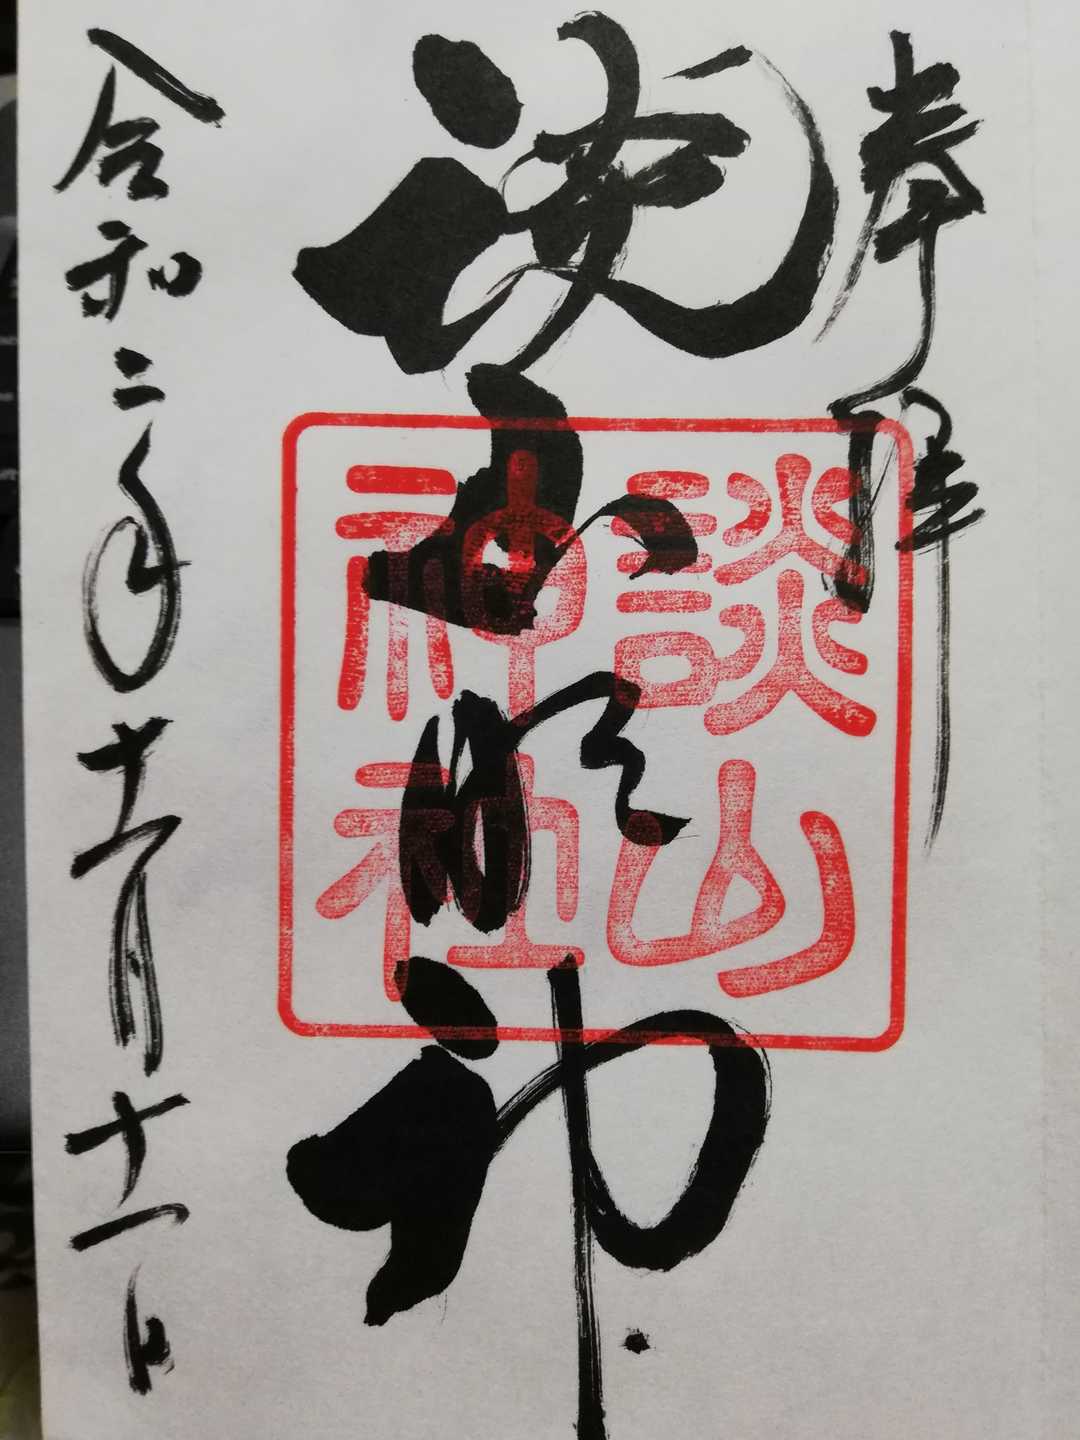 奉拝
談山明神
令和二年十一月十一日
談山
神社